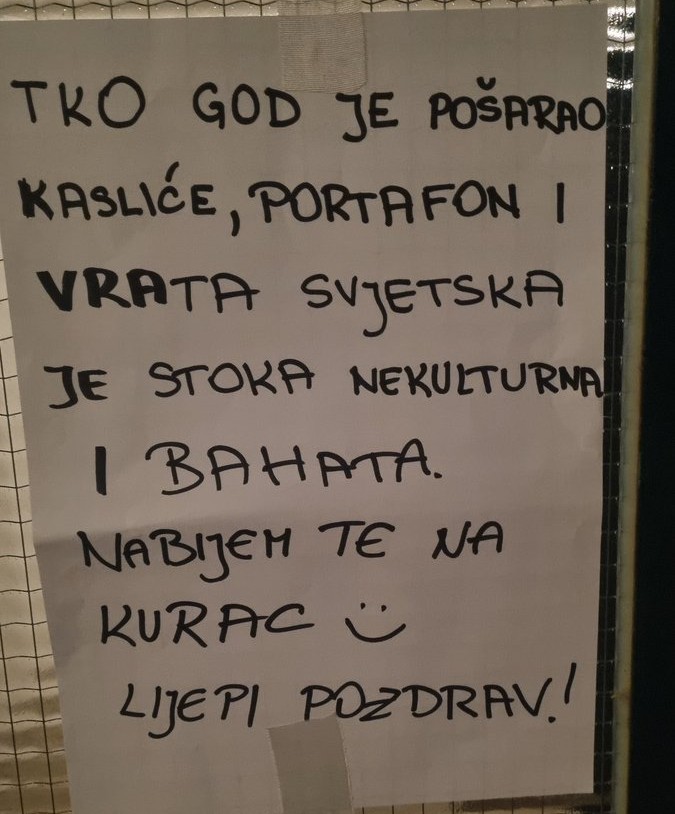 TKO GOD JE POŠARAO
KASLIĆE, PORTAFON I
VRATA SVJETSKA
JE STOKA NEKULTURNA
I BAHATA.
NABIJEM TE NA
KURAC Ü
LIJEPI POZDRAV!